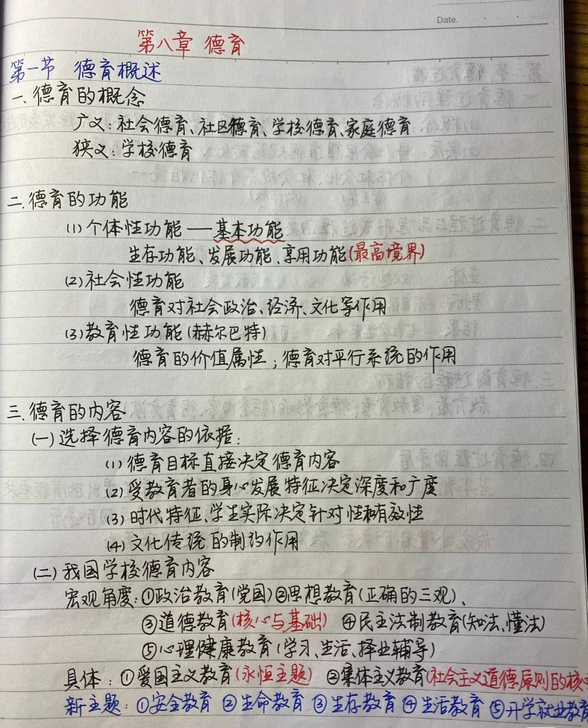 Date.
第八章 德育
第一节 德育概述
一.德育的概念
广义:社会德育、社区德育、学校德育、家庭德育
狭义:学校德育
二.德育的功能
(1)个体性功能——基本功能
生存功能、发展功能、享用功能(最高境界)
(2)社会性功能
德育对社会政治、经济、文化等作用
(3)教育性功能(赫尔巴特)
德育的价值属性;德育对平行系统的作用
三.德育的内容
(一)选择德育内容的依据:
(1)德育目标直接决定德育内容
(2)受教育者的身心发展特征决定深度和广度
(3)时代特征、学生实际决定针对性和有效性
(4)文化传统的制约作用
(二)我国学校德育内容
宏观角度:①政治教育(党国)②思想教育(正确的三观)、
③道德教育(核心与基础) ④民主法制教育(知法、懂法)
⑤心理健康教育(学习、生活、择业辅导)
具体:①爱国主义教育(永恒主题) ②集体主义教育(社会主义道德原则的核心
新主题:①安全教育 ②生命教育 ③生存教育 ④生活教育 ⑤升学就业教育